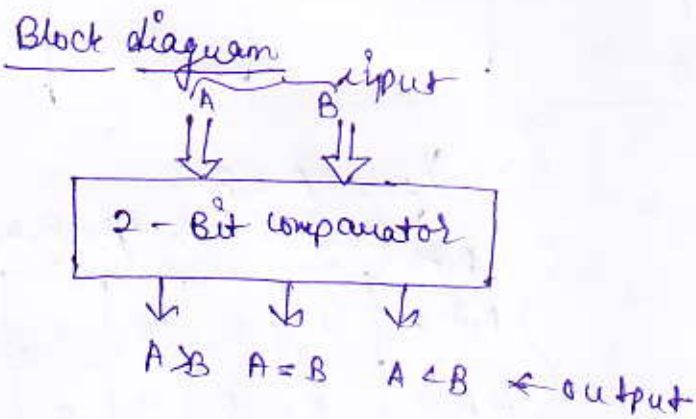 Block diagram
input
A B
2 - Bit comparator
A>B A = B A < B ← output